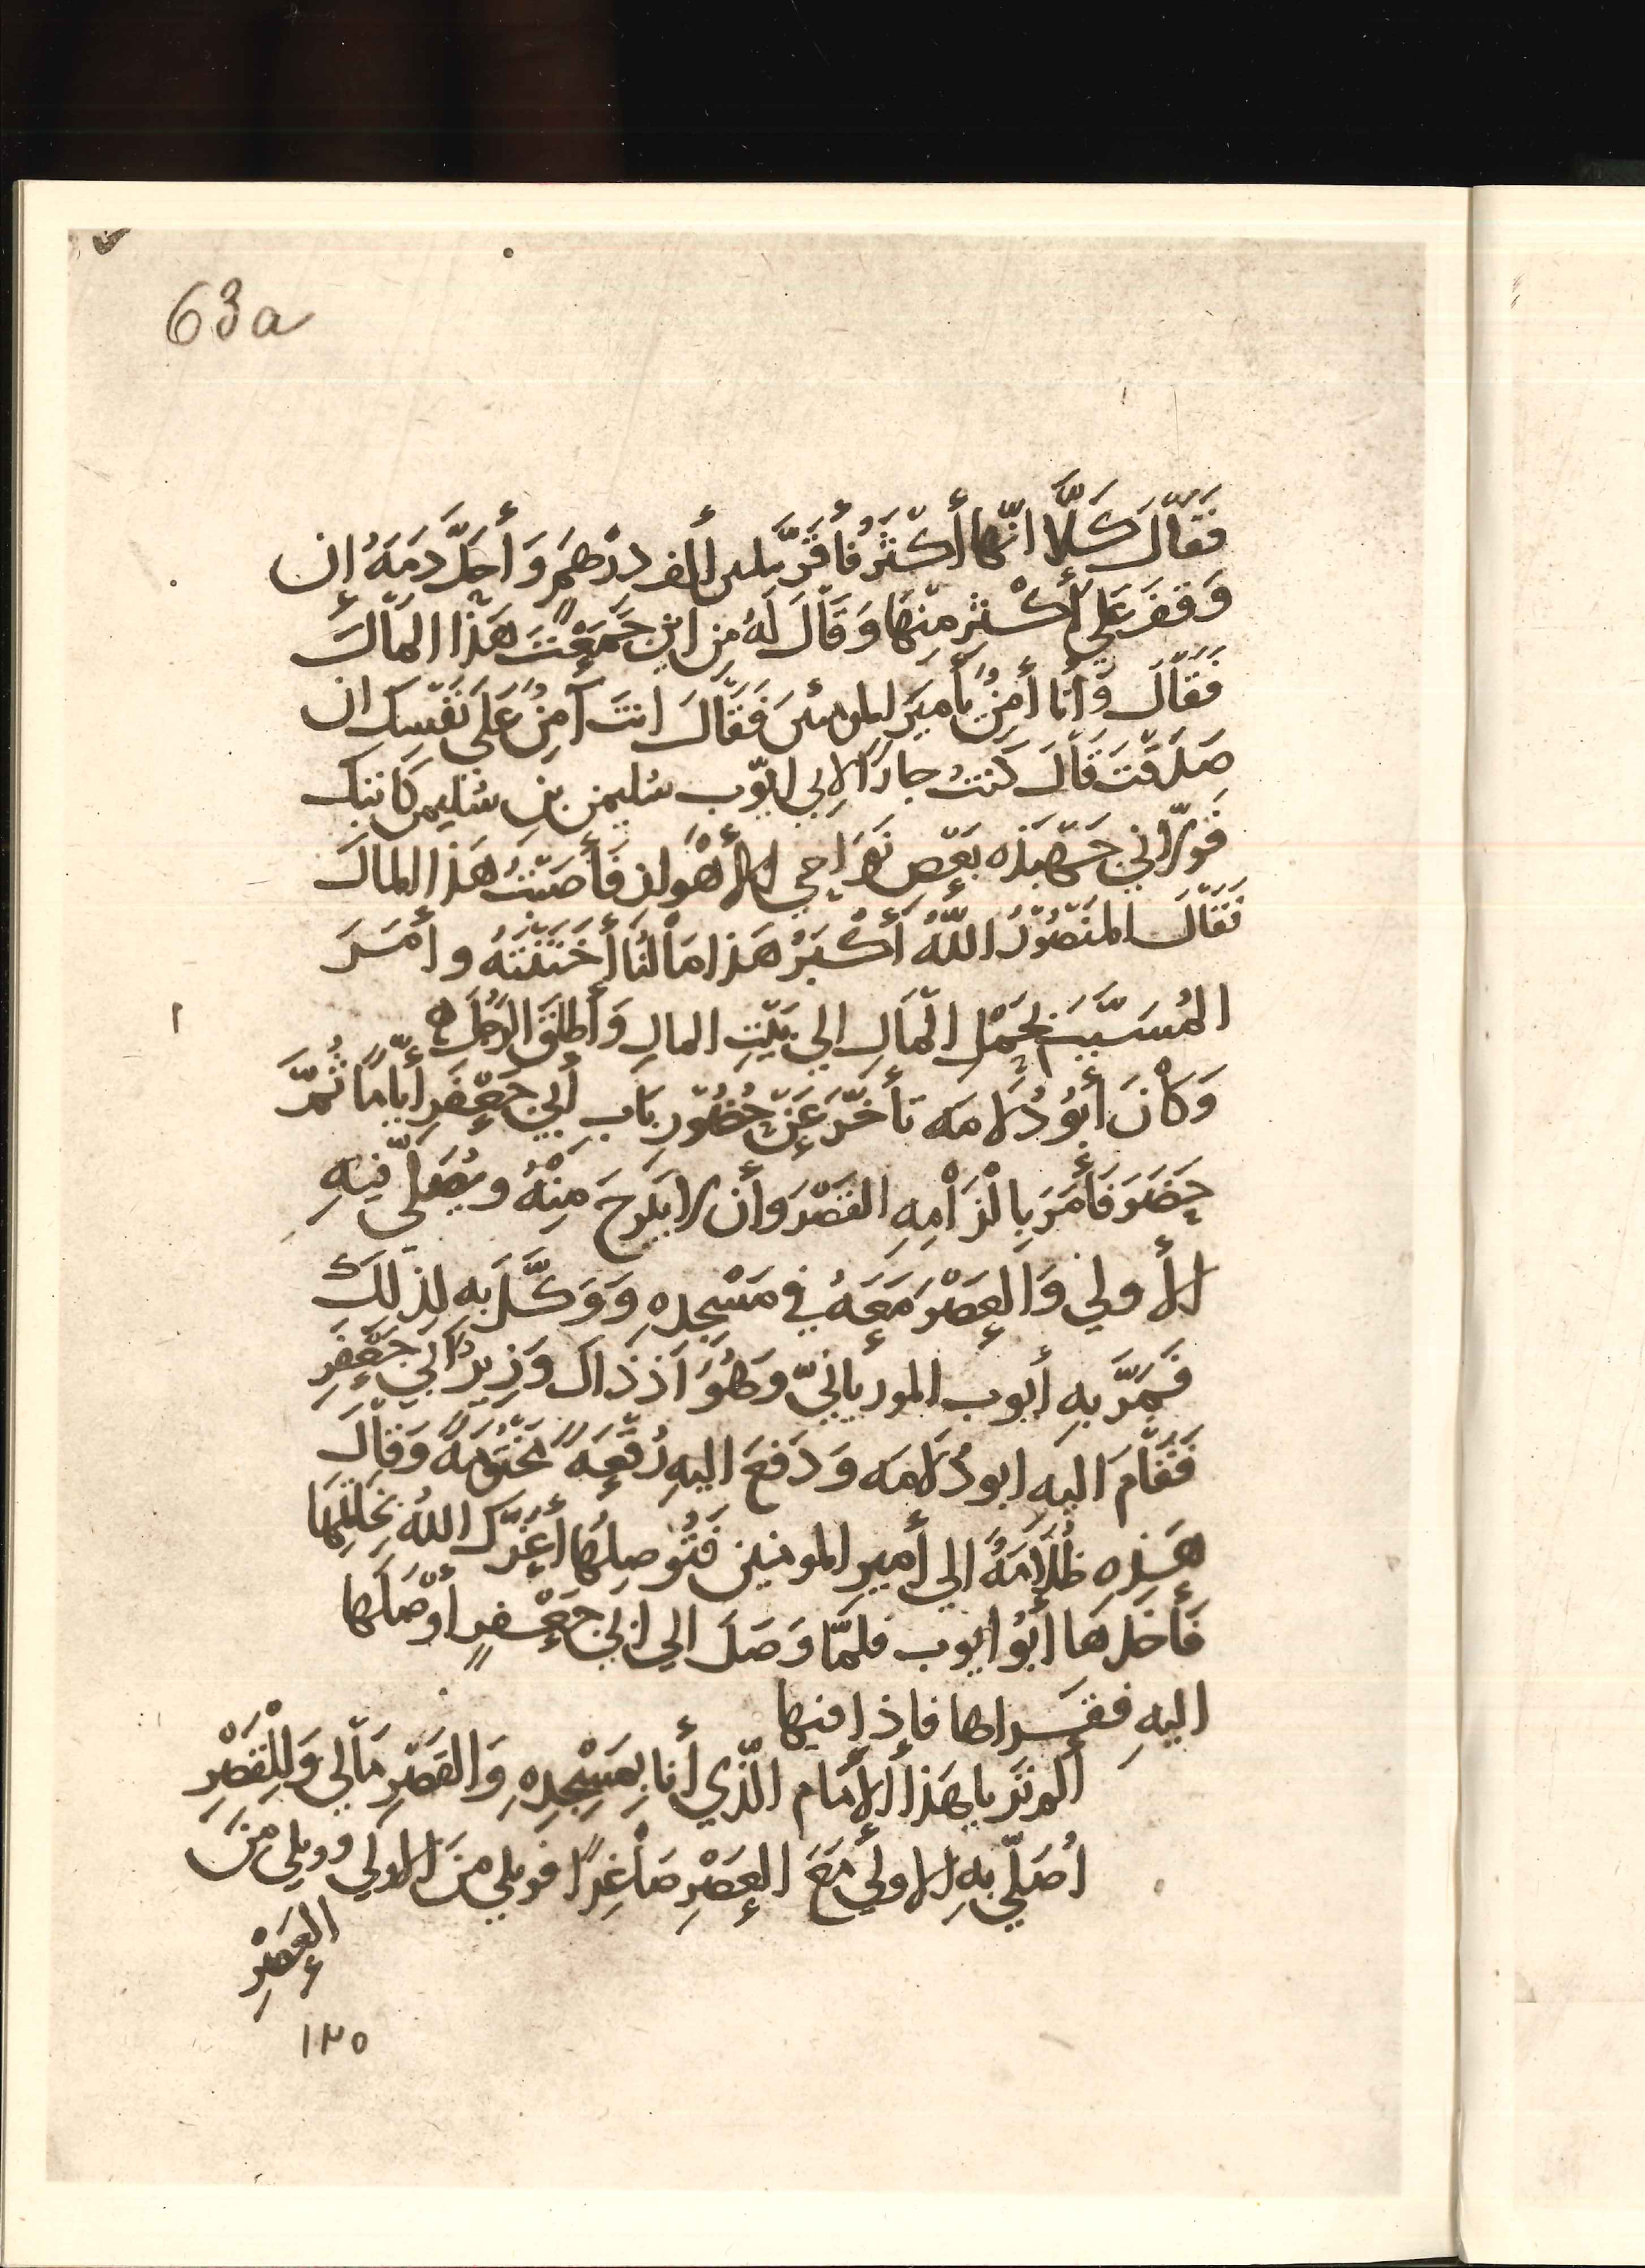 63a
فَقَالَ كَلَّا انّها أَكْثَرُ فأَقَرَّ بثلثين ألف دِرْهَمٍ وَأَحَلَّ دَمَهُ إن
وَقفَ عَلى أَكْثَرِ مِنْهَا وَقَالَ لَهُ مِن اين جَمَعْتَ هَذَا المَالَ
فَقَالَ وَأَنا أمِنٌ يأَميَر المومنين فَقَالَ انتَ آمِنٌ عَلَى نَفْسِكَ ان
صَدَقْتَ قَالَ كنتُ جارًا لابي ايّوب سُليمن بن سُليمن كاتبك
فَولَّاني جَهْبَذه بَعْض نَوَاحِي الأهْوَاز فَأَصَبْتُ هَذا المالَ
فَقَالَ المَنْصُورُ اللّهُ أَكْبَرُ هَذا مَالُنَا أَخْتَنْتَهُ وأَمَرَ
المُسَيَّبَ بِحَمْل المَالِ الي بَيْتِ المالِ وَأطلَقَ الرَّجُلَ ه
وَكَانَ أَبُو دُلَامَه تأخّرَ عَنْ حُضُورِ بَابِ أبي جَعْفَرِ أيّامًا ثُمَّ
حَضَرَ فَأَمَرَ بِالْزَامِهِ القَصْرَ وأن لا يَبْرحَ مِنْهُ ويُصَلّي فيهِ
الأولي وَالعَصْرَ مَعَهُ في مَسْجِدِهِ وَوَكَّلَ بِهِ لِذلِكَ
فَمَرَّ بهِ أبوب المورياني وَهُوَ اَذذاك وَزيرُ ابي جَعْفَرِ
فَقَامَ اليهِ ابو دُلَامَه وَدَفعَ اليهِ رُقْعَةً مَخْتومَةً وَقالَ
هَذِهِ ظُلَامَةُ الي أمير المومنين فَتُوصِلُهَا أعَزَّك اللهُ بخَاتَمِهَا
فَأَخَذَهَا أبُو ايوب فلمّا وَصَلَ الي ابي جَعْفَرٍ أوْصَلَهَا
اليهِ فقَراها فإذا فيها
ألم تر يا هَذا الإمام الّذي أنا بِمَسْجِدِهِ وَالقَصْرِ مَالي وَللْقَصْرِ
اُصَلّي بهِ الاولي مَعَ العَصْرِ صَاغِرًا فويلي منَ الاولي وويلي مِنَ
العَصْرِ
١٢٥
١